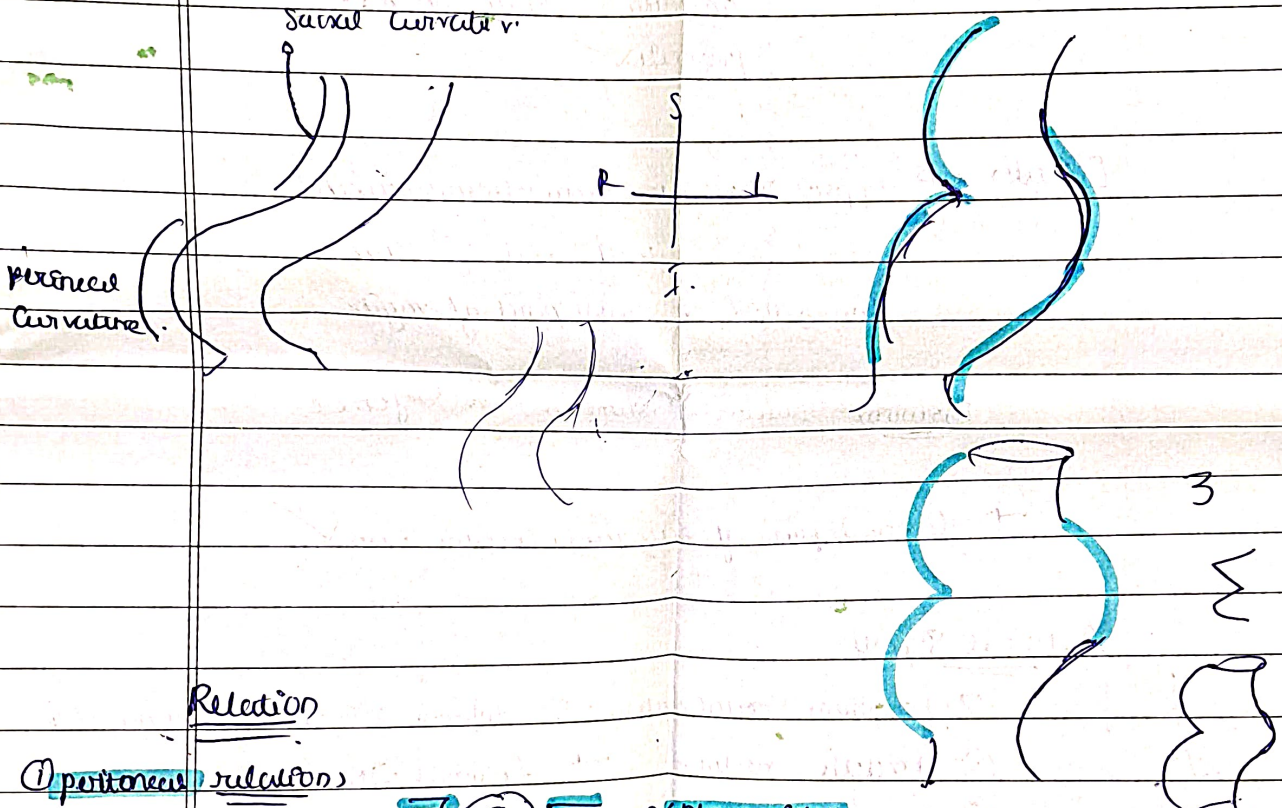 Sacral Curvature.
S
R L
I.
perineal
Curvature.
3
Relation
① peritoneal relations